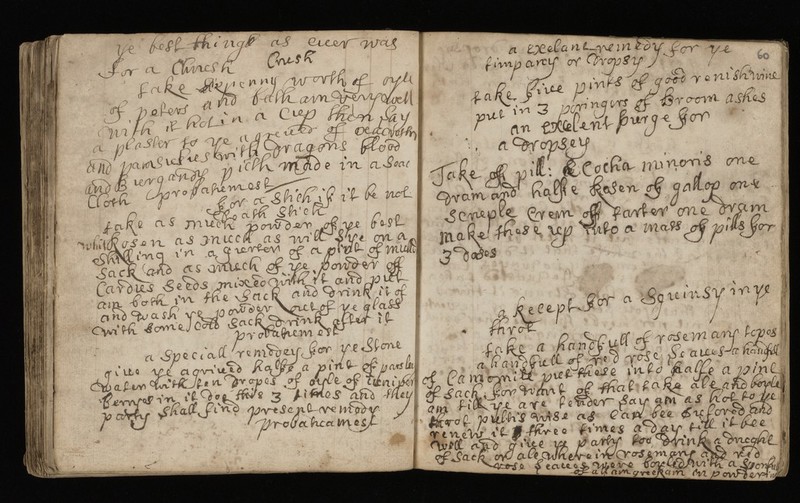 ye best things as ever was
for a Church Crush
take penny worth of oyle
of peters and bath am very well
with it hot in a Cup then lay
a plaster to ye agreued of
and paracelsus with dragons blood
and Burgandy pitch made in a
Cloth probatumest
for a Stich if it be not
death Stich
take as much powder of ye best
white Rosen as much as will lye on a
Shilling in a querter of a pint of mulld
Sack and as much of ye powder off
Cardies Seeds mixed with it and put
am both in the Sack and drink it of
and wash ye powder out of ye glass
with some Cold Sack drink after it
probatumest
a Speciall remedey for ye Stone
giue ye agriued halfe a pint of parsley
water with ten dropes of oyle of Juniper
berryes in it doe this 3 times and they
party shall find present remedy
probatumest
60
a Exelant remedy for ye
timparey or Dropsey
take fiue pints of good renish wine
put in 3 poringers of Broom ashes
an Exelent purge for
a dropsey
Take of pill: Cocha minoris one
dram and halfe Rosen of gallop one
scruple Crem off tarter one dram
make these up into a mass of pills for
3 doses
a Recept for a Squinsy in ye
throt
take a handfull of rosemary topes
a handfull of red rose leaues a handfull
of Camomill put these into halfe a pint
of Sack for want of that take ale and boyle
am till ye are tender Lay am as hot to ye
throt pultis wise as Can bee Suffored and
renew it three times a day till it bee
well and giue ye party too drink a draught
of Sack or ale wherein rosemary and red
rose leaues were boyled with a
of allam greekam in powder